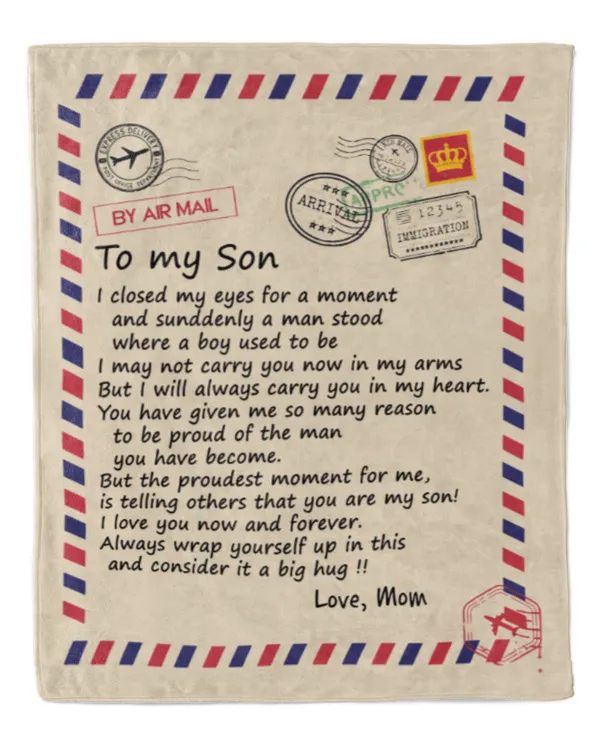 EXPRESS DELIVERY
POST OFFICE DEPARTMENT
BY AIR MAIL
ARRIVAL
12345
IMMIGRATION
To my Son
I closed my eyes for a moment
and sunddenly a man stood
where a boy used to be
I may not carry you now in my arms
But I will always carry you in my heart.
You have given me so many reason
to be proud of the man
you have become.
But the proudest moment for me,
is telling others that you are my son!
I love you now and forever.
Always wrap yourself up in this
and consider it a big hug !!
Love, Mom